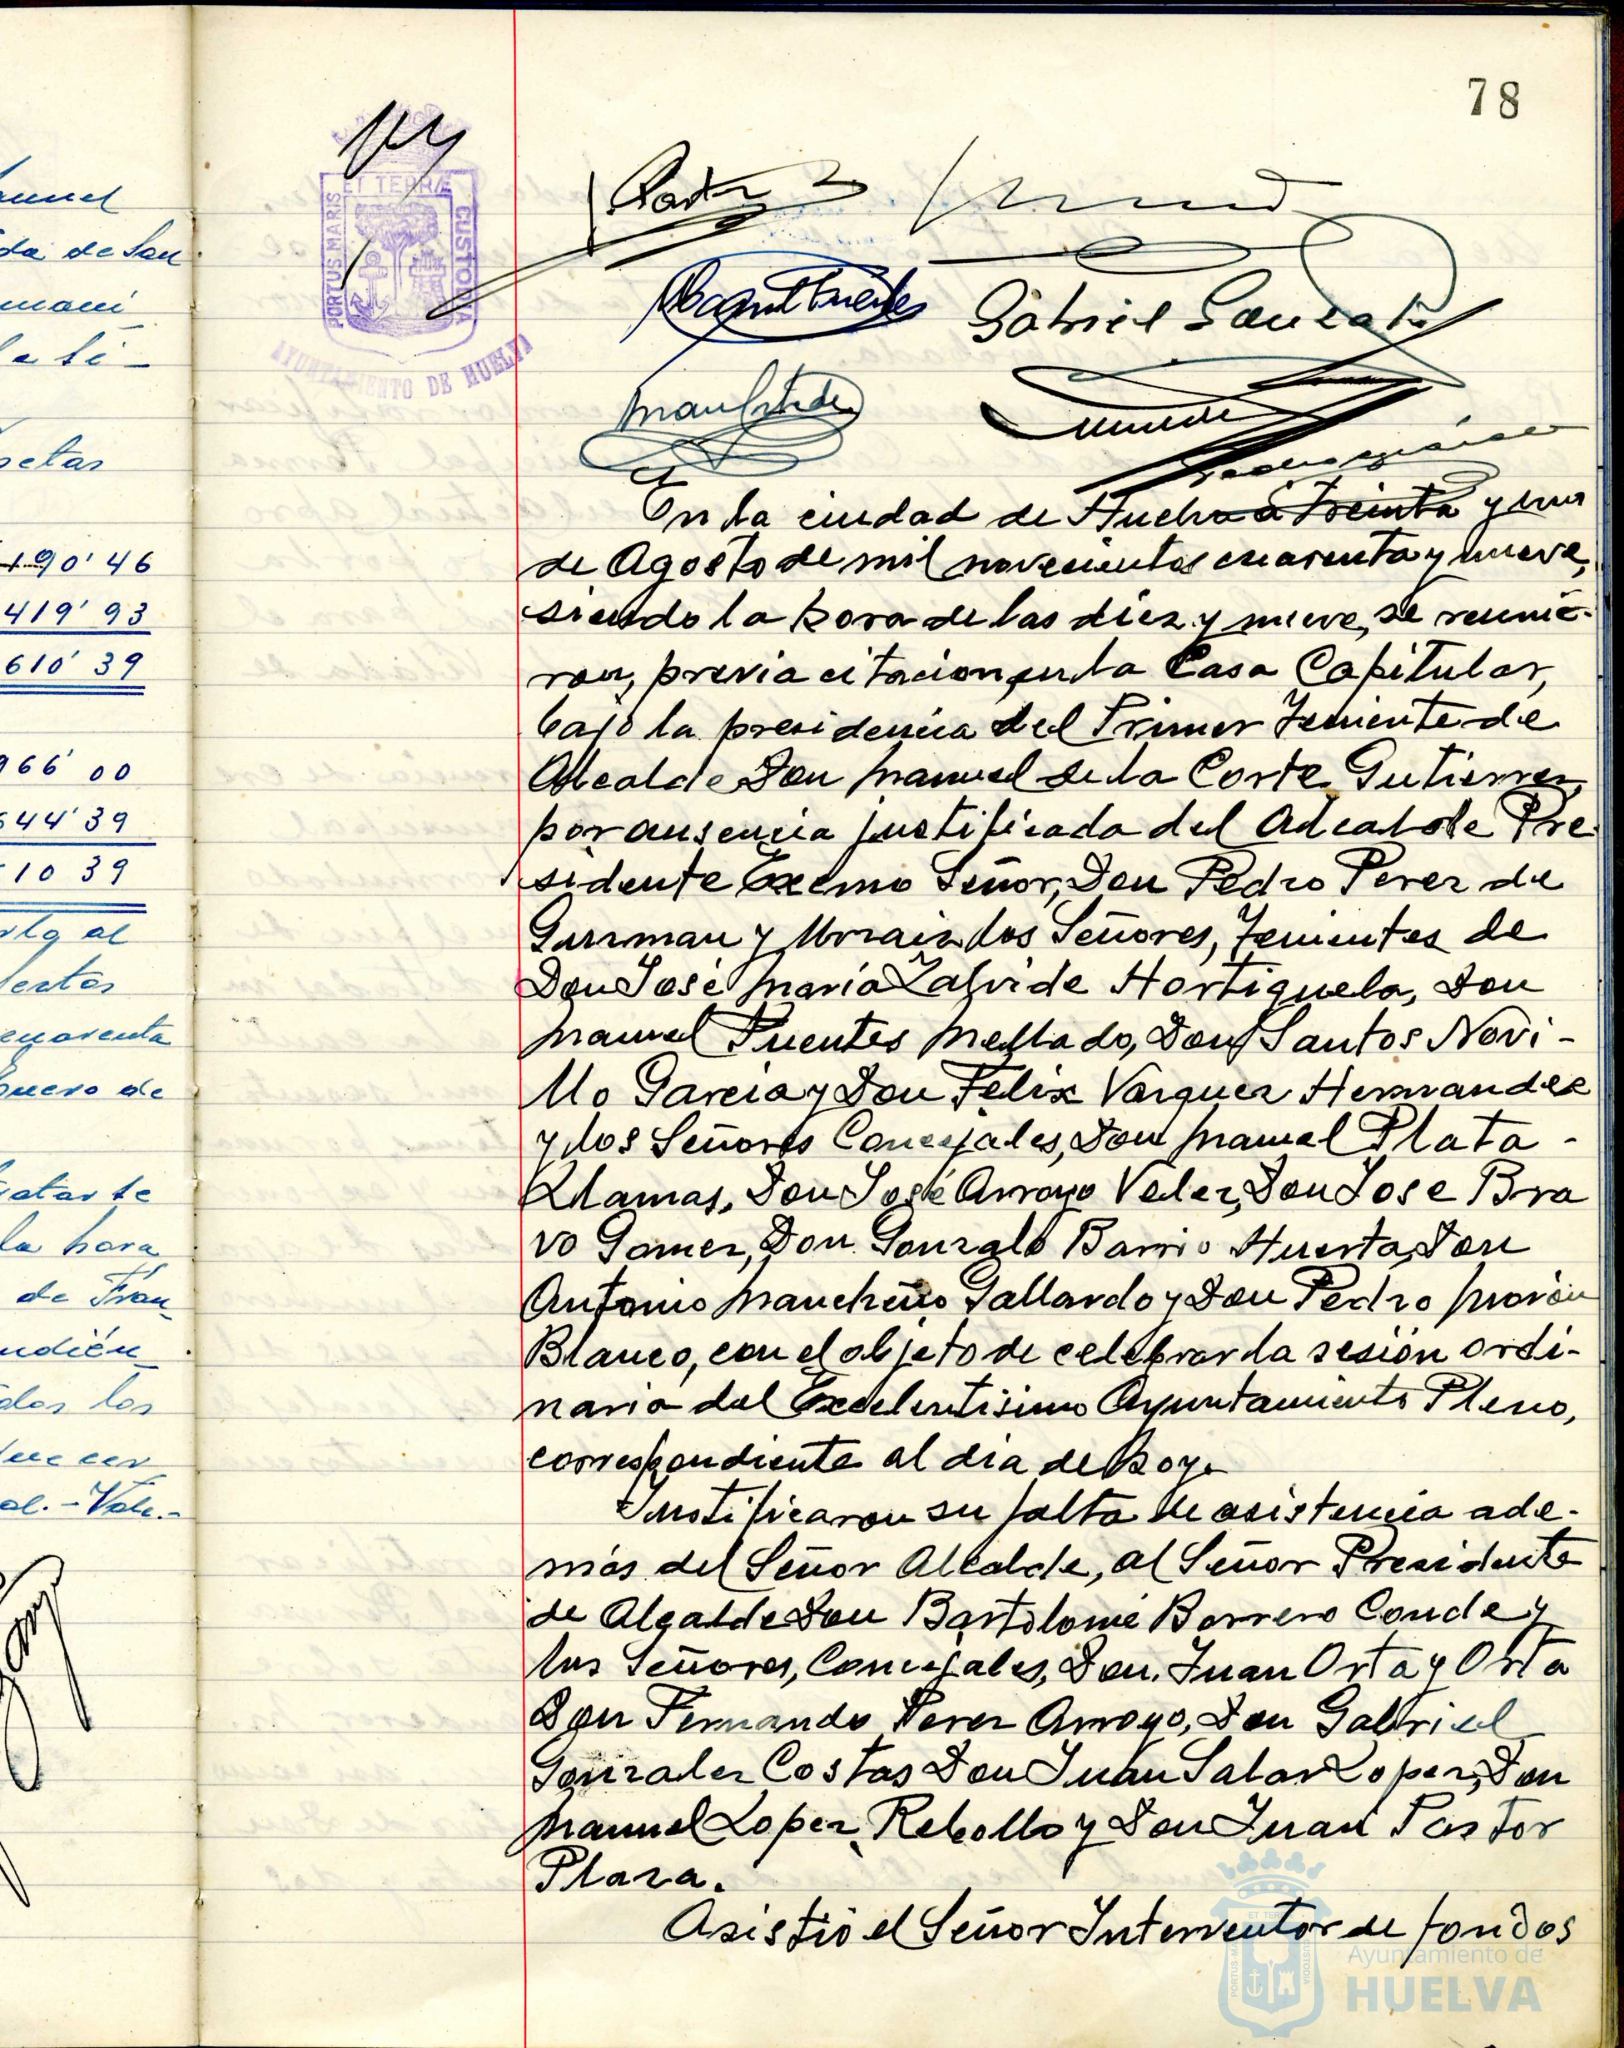 78
ET TERRÆ
PORTUS MARIS
CUSTODIA
AYUNTAMIENTO DE HUELVA
Gabriel Gonzalez
En la ciudad de Huelva a Treinta y uno
de Agosto de mil novecientos cuarenta y nueve,
siendo la hora de las diez y nueve, se reunie-
ron, previa citacion, en la Casa Capitular,
bajo la presidencia del Primer Teniente de
Alcalde Don Manuel de la Corte Gutierrez,
por ausencia justificada del Alcalde Pre
sidente Excmo Señor, Don Pedro Perez de
Guzman y Urzaiz, los Señores, Tenientes de
Don José Maria Zalvide Hortiguela, Don
Manuel Fuentes Mellado, Don Santos Novi-
llo Garcia y Don Felix Vazquez Hernandez
y los Señores Concejales, Don Manuel Plata -
Llamas, Don José Arroyo Velez, Don Jose Bra
vo Gomez, Don Gonzalo Barrio Huerta, Don
Antonio Mancheño Gallardo y Don Pedro Morón
Blanco, con el objeto de celebrar la sesión ordi-
naria del Excelentisimo Ayuntamiento Pleno,
correspondiente al dia de hoy.
Justificaron su falta de asistencia ade-
más del Señor Alcalde, al Señor Presidente
de Alcalde Don Bartolomé Borrero Conde y
los Señores, Concejales, Don Juan Orta y Orta
Don Fernando Perez Arroyo, Don Gabriel
Gonzalez Costas Don Juan Salas Lopez, Don
Manuel Lopez Rebollo y Don Juan Pastor
Plaza.
Asistió el Señor Interventor de fondos
Ayuntamiento de
HUELVA
anuel
da de San
la si-
setas
190'46
419'93
610'39
966'00
644'39
10 39
al
cuarenta
Enero de
tratarse
la hora
de Fran
ndién
dos los